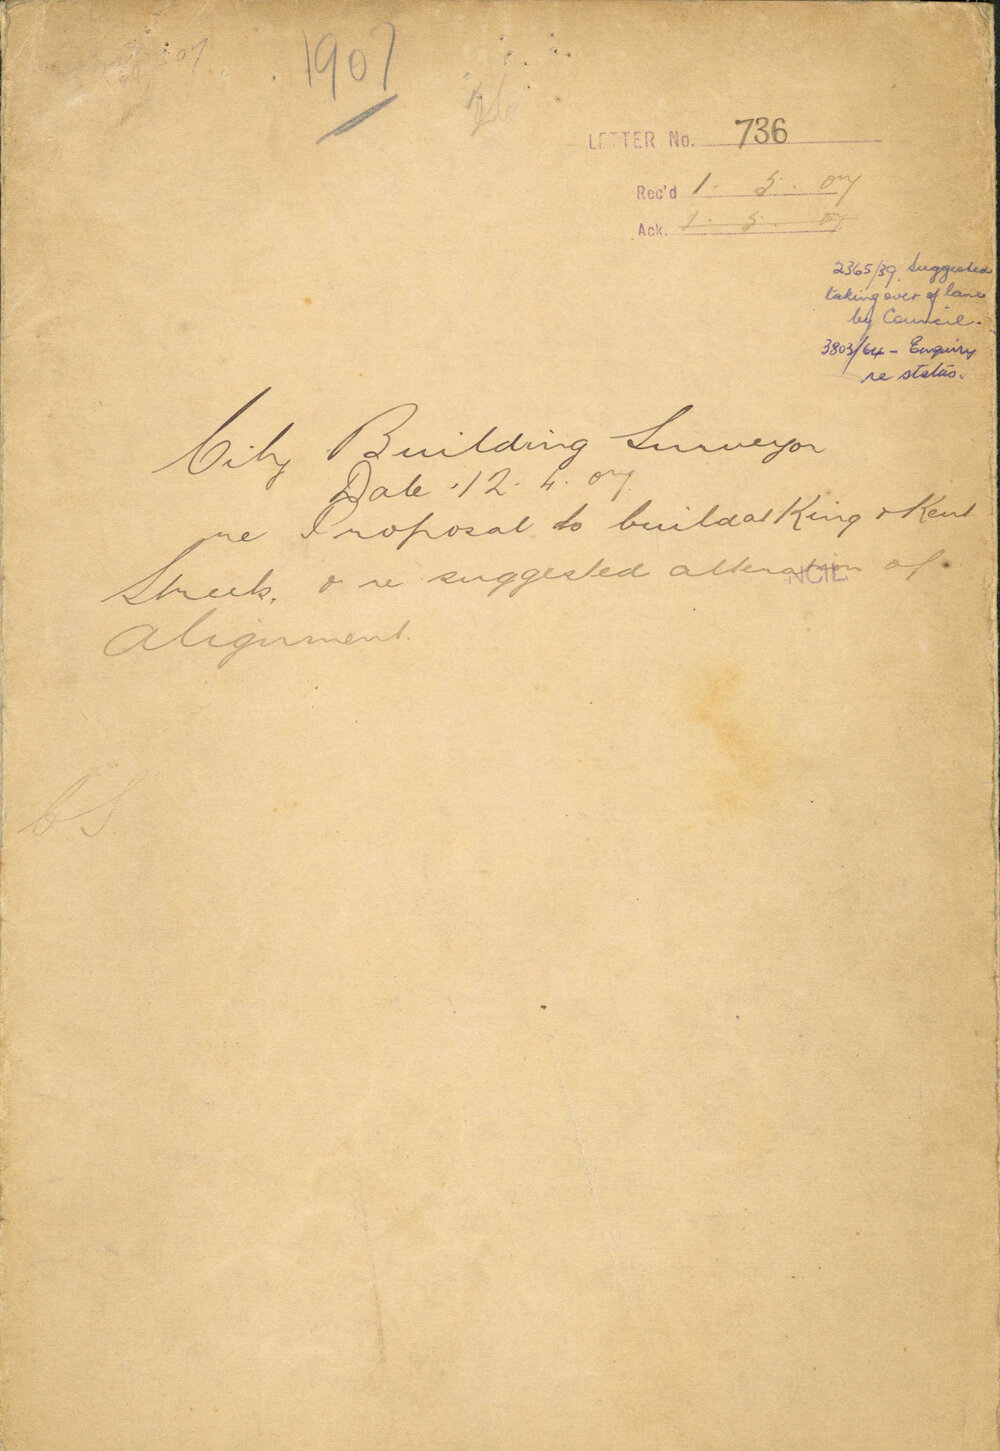 1907
LETTER No. 736
Rec'd 1. 5. 07
Ack. 1. 5. 07
2365/39 Suggested
taking over of lane
by Council.
3803/64 - Enquiry
re status.
City Building Surveyor
Date 12. 4. 07
re Proposal to build at King & Kent
Streets, & re suggested alteration of
Alignment.
NCIL